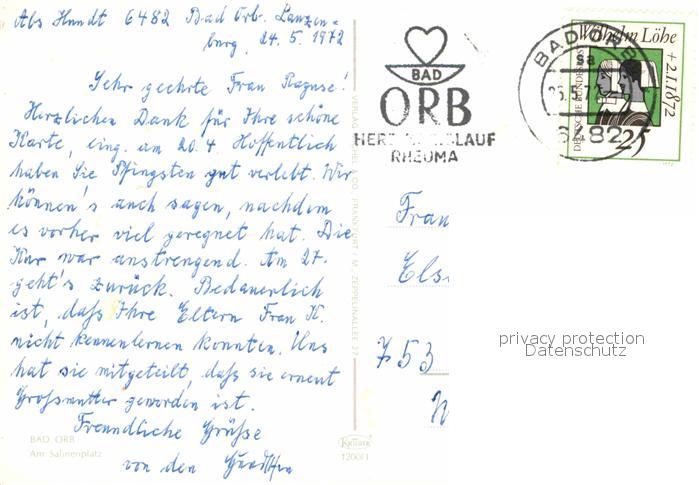 Abs Hundt 6482 Bad Orb. Lanzen=
burg, 24.5.1972
Sehr geehrte Frau Raguse!
Herzlichen Dank für Ihre schöne
Karte, eing. am 20.4 Hoffentlich
haben Sie Pfingsten gut verlebt. Wir
können's auch sagen, nachdem
es vorher viel geregnet hat. Die
Kur war anstrengend. Am 27.
geht's zurück. Bedauerlich
ist, daß Ihre Eltern Frau K.
nicht kennenlernen konnten. Uns
hat sie mitgeteilt, daß sie erneut
Großmutter geworden ist.
Freundliche Grüße
von den
BAD ORB
Am Salinenplatz
Krüger
1200/1
BAD
ORB
HERZ KREISLAUF
RHEUMA
BAD ORB
sa
6482
Wilhelm Löhe
+2.1.1872
DEUTSCHE BUNDESPOST
25
Frau
Els
753
privacy protection
Datenschutz